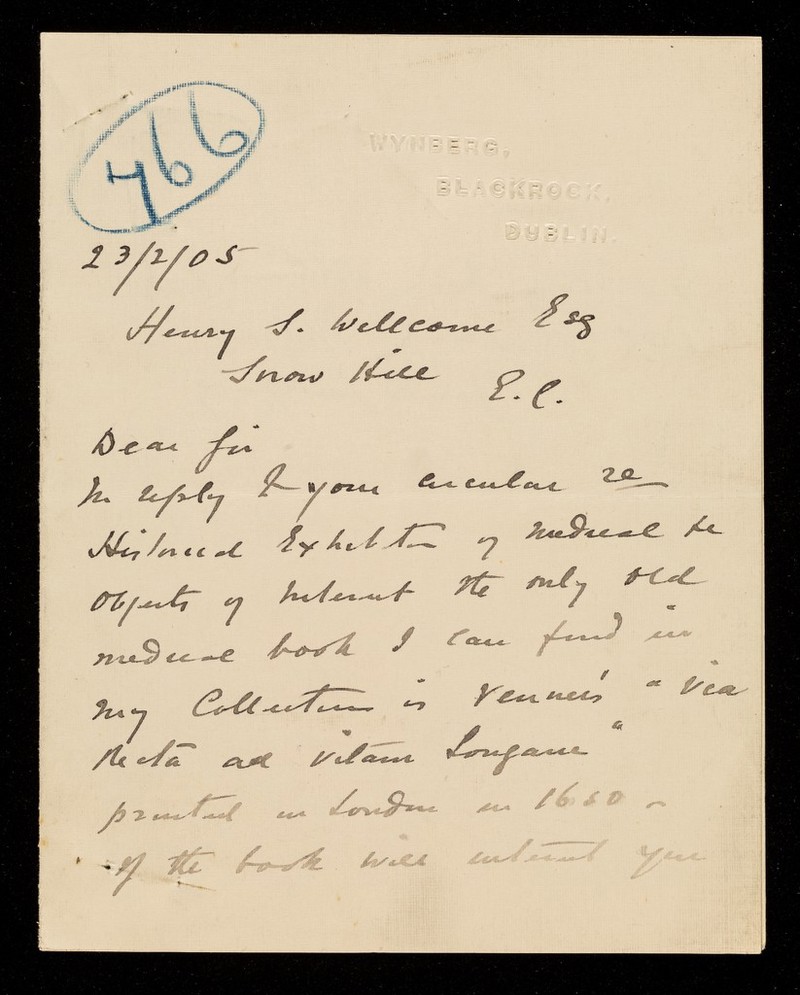 766
WYNBERG,
BLACKROCK,
DUBLIN.
23/2/05
Henry S. Wellcome Esq
Snow Hill
E.C.
Dear Sir
In reply to your circular re
Historical Exhibition of medical &c
Objects of Interest the only old
medical book I can find in
my Collection is Venner's "Via
Recta ad Vitam Longam"
printed in London in 1650 -
If the book will interest you